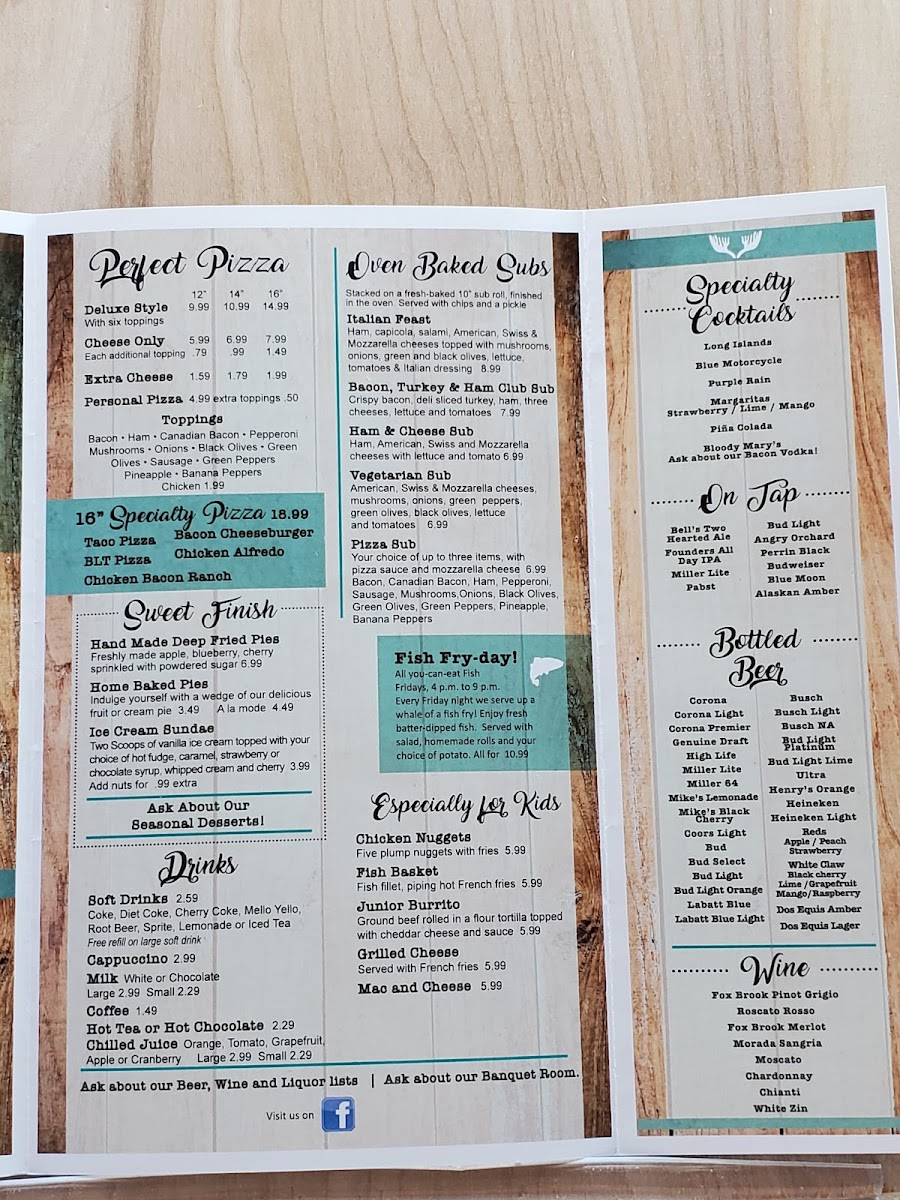 Perfect Pizza
12" 14" 16"
Deluxe Style 9.99 10.99 14.99
With six toppings
Cheese Only 5.99 6.99 7.99
Each additional topping .79 .99 1.49
Extra Cheese 1.59 1.79 1.99
Personal Pizza 4.99 extra toppings .50
Toppings
Bacon • Ham • Canadian Bacon • Pepperoni
Mushrooms • Onions • Black Olives • Green
Olives • Sausage • Green Peppers
Pineapple • Banana Peppers
Chicken 1.99
16" Specialty Pizza 18.99
Taco Pizza Bacon Cheeseburger
BLT Pizza Chicken Alfredo
Chicken Bacon Ranch
Sweet Finish
Hand Made Deep Fried Pies
Freshly made apple, blueberry, cherry
sprinkled with powdered sugar 6.99
Home Baked Pies
Indulge yourself with a wedge of our delicious
fruit or cream pie 3.49 A la mode 4.49
Ice Cream Sundae
Two Scoops of vanilla ice cream topped with your
choice of hot fudge, caramel, strawberry or
chocolate syrup, whipped cream and cherry 3.99
Add nuts for .99 extra
Ask About Our
Seasonal Desserts!
Drinks
Soft Drinks 2.59
Coke, Diet Coke, Cherry Coke, Mello Yello,
Root Beer, Sprite, Lemonade or Iced Tea
Free refill on large soft drink
Cappuccino 2.99
Milk White or Chocolate
Large 2.99 Small 2.29
Coffee 1.49
Hot Tea or Hot Chocolate 2.29
Chilled Juice Orange, Tomato, Grapefruit,
Apple or Cranberry Large 2.99 Small 2.29
Oven Baked Subs
Stacked on a fresh-baked 10" sub roll, finished
in the oven. Served with chips and a pickle
Italian Feast
Ham, capicola, salami, American, Swiss &
Mozzarella cheeses topped with mushrooms,
onions, green and black olives, lettuce,
tomatoes & Italian dressing 8.99
Bacon, Turkey & Ham Club Sub
Crispy bacon, deli sliced turkey, ham, three
cheeses, lettuce and tomatoes 7.99
Ham & Cheese Sub
Ham, American, Swiss and Mozzarella
cheeses with lettuce and tomato 6.99
Vegetarian Sub
American, Swiss & Mozzarella cheeses,
mushrooms, onions, green peppers,
green olives, black olives, lettuce
and tomatoes 6.99
Pizza Sub
Your choice of up to three items, with
pizza sauce and mozzarella cheese 6.99
Bacon, Canadian Bacon, Ham, Pepperoni,
Sausage, Mushrooms,Onions, Black Olives,
Green Olives, Green Peppers, Pineapple,
Banana Peppers
Fish Fry-day!
All you-can-eat Fish
Fridays, 4 p.m. to 9 p.m.
Every Friday night we serve up a
whale of a fish fry! Enjoy fresh
batter-dipped fish. Served with
salad, homemade rolls and your
choice of potato. All for 10.99
Especially for Kids
Chicken Nuggets
Five plump nuggets with fries 5.99
Fish Basket
Fish fillet, piping hot French fries 5.99
Junior Burrito
Ground beef rolled in a flour tortilla topped
with cheddar cheese and sauce 5.99
Grilled Cheese
Served with French fries 5.99
Mac and Cheese 5.99
Ask about our Beer, Wine and Liquor lists | Ask about our Banquet Room.
Visit us on f
Specialty
Cocktails
Long Islands
Blue Motorcycle
Purple Rain
Margaritas
Strawberry / Lime / Mango
Piña Colada
Bloody Mary's
Ask about our Bacon Vodka!
On Tap
Bell's Two
Hearted Ale
Founders All
Day IPA
Miller Lite
Pabst
Bud Light
Angry Orchard
Perrin Black
Budweiser
Blue Moon
Alaskan Amber
Bottled
Beer
Corona
Corona Light
Corona Premier
Genuine Draft
High Life
Miller Lite
Miller 64
Mike's Lemonade
Mike's Black
Cherry
Coors Light
Bud
Bud Select
Bud Light
Bud Light Orange
Labatt Blue
Labatt Blue Light
Busch
Busch Light
Busch NA
Bud Light
Platinum
Bud Light Lime
Ultra
Henry's Orange
Heineken
Heineken Light
Reds
Apple / Peach
Strawberry
White Claw
Black cherry
Lime /Grapefruit
Mango/Raspberry
Dos Equis Amber
Dos Equis Lager
Wine
Fox Brook Pinot Grigio
Roscato Rosso
Fox Brook Merlot
Morada Sangria
Moscato
Chardonnay
Chianti
White Zin